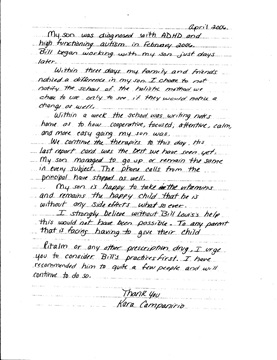 April 2006.
My son was diagnosed with ADHD and
high functioning autism in February 2006.
Bill began working with my son just days
later.
Within three days my family and friends
noticed a difference in my son. I chose to not
notify the school of the holistic method we
chose to use only to see, if they would notice a
change as well.
Within a week the school was writing notes
home as to how cooperative, focused, attentive, calm,
and more easy going my son was.
We continue the therapies to this day, this
last report card was the best we have seen yet.
My son managed to go up or remain the same
in every subject. The phone calls from the
principal have stopped as well.
My son is happy to take the vitamins
and remains the happy child that he is
without any side effects what so ever.
I strongly believe without Bill help
this would not have been possible. To any parent
that is facing having to give their child
Ritalin or any other prescription drug, I urge
you to consider Bill's practices first. I have
recommended him to quite a few people and will
continue to do so.
Thank you
Kara